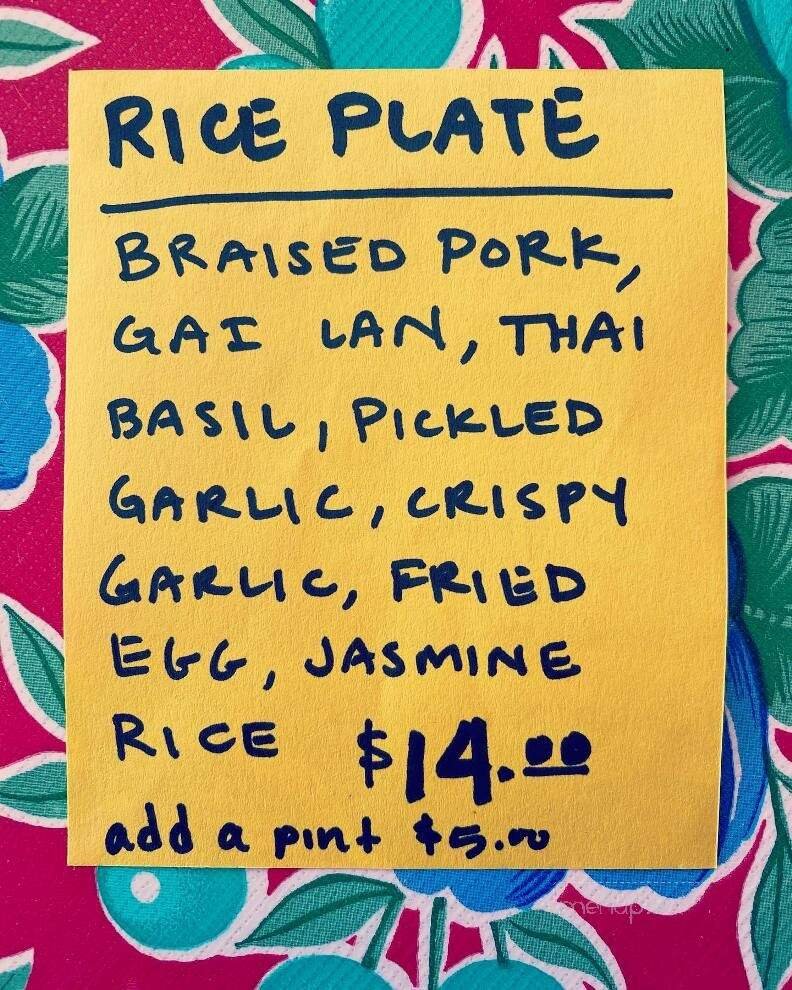 RICE PLATE
BRAISED PORK,
GAI LAN, THAI
BASIL, PICKLED
GARLIC, CRISPY
GARLIC, FRIED
EGG, JASMINE
RICE $14.00
add a pint $5.00